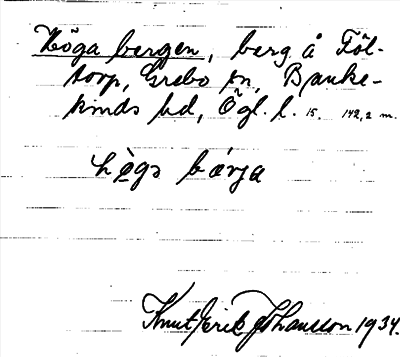 Höga bergen, berg å Föl-
torp, Grebo sn, Banke-
kinds hd, Ögl. l. 15. 142,2 m.
hө̀gɑ bærja
Knut Erik Johansson 1934.